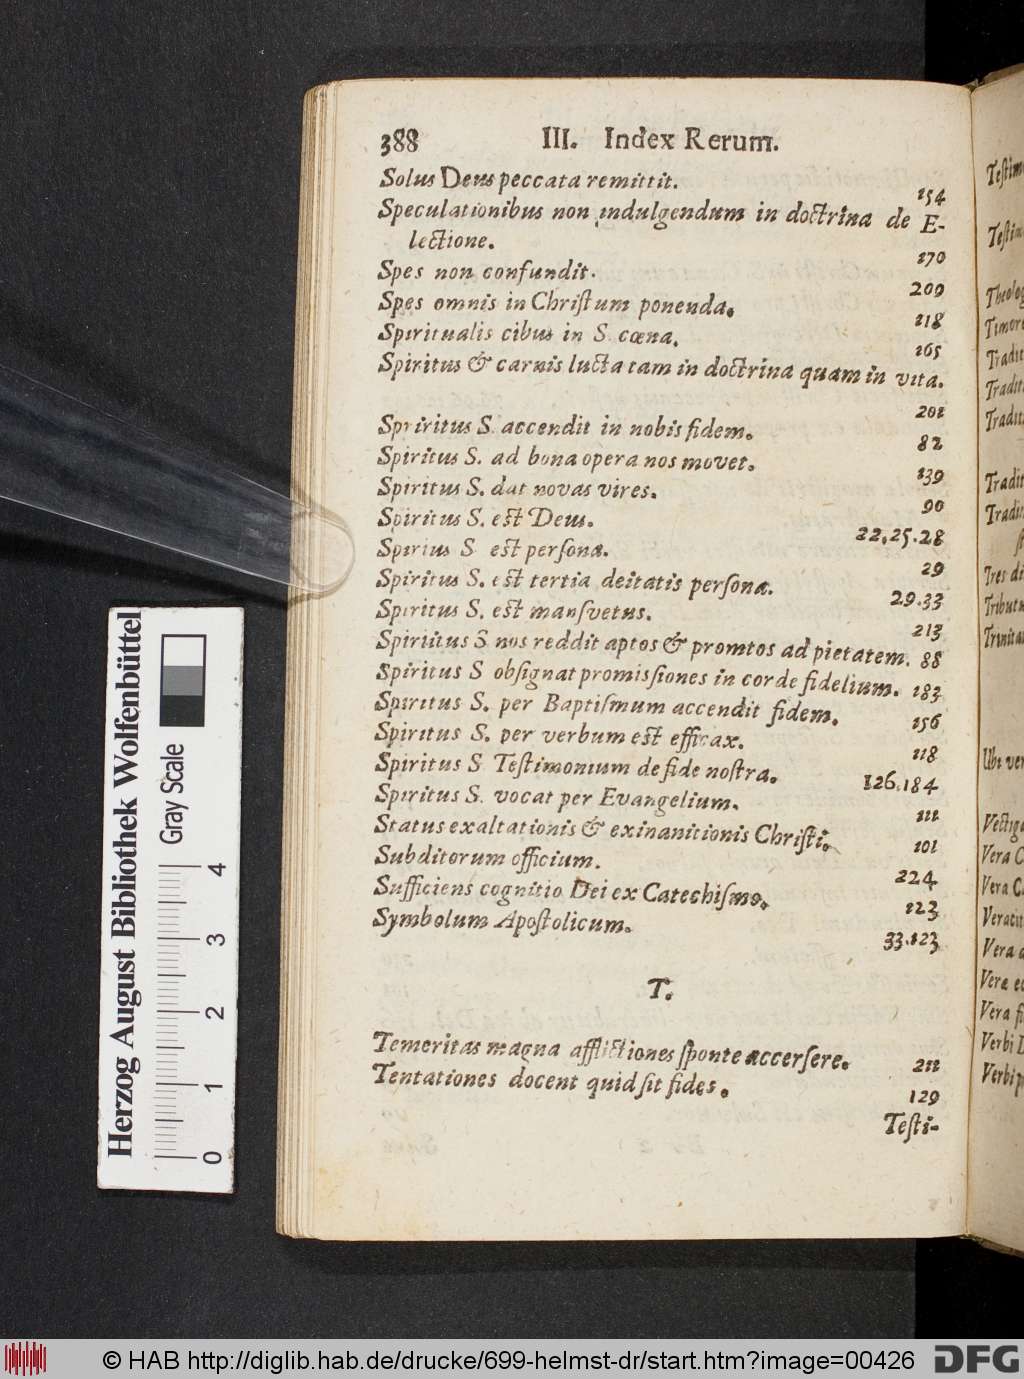 388 III. Index Rerum.
Solus Deus peccata remittit. 154
Speculationibus non indulgendum in doctrina de E-
lectione. 170
Spes non confundit. 209
Spes omnis in Chriſtum ponenda. 118
Spiritualis cibus in S. cœna. 165
Spiritus & carnis lucta tam in doctrina quam in vita.
201
Spiritus S. accendit in nobis fidem. 82
Spiritus S. ad bona opera nos movet. 139
Spiritus S. dat novas vires. 90
Spiritus S. est Deus. 22.25.28
Spiritus S. est perſona. 29
Spiritus S. est tertia deitatis perſona. 29.33
Spiritus S. est manſvetus. 213
Spiritus S nos reddit aptos & promtos ad pietatem. 88
Spiritus S obſignat promisſiones in corde fidelium. 183
Spiritus S. per Baptiſmum accendit fidem. 156
Spiritus S. per verbum est efficax. 118
Spiritus S Teſtimonium de fide noſtra. 126.184
Spiritus S. vocat per Evangelium. 111
Status exaltationis & exinanitionis Chriſti. 101
Subditorum officium. 224
Sufficiens cognitio Dei ex Catechiſmo. 123
Symbolum Apoſtolicum. 33.123
T.
Temeritas magna afflictiones ſponte accerſere. 211
Tentationes docent quid ſit fides. 129
Teſti-
Teſtim
Teſtim
Theolog
Timore
Tradit
Tradit
Tradit
Tradit
Tres di
Tributu
Trinita
Ubi ver
Vectiga
Vera C
Vera C
Vera
Veræ ec
Vera fi
Verbi
Verbi p
Herzog August Bibliothek Wolfenbüttel
Gray Scale
0 1 2 3 4
© HAB http://diglib.hab.de/drucke/699-helmst-dr/start.htm?image=00426
DFG